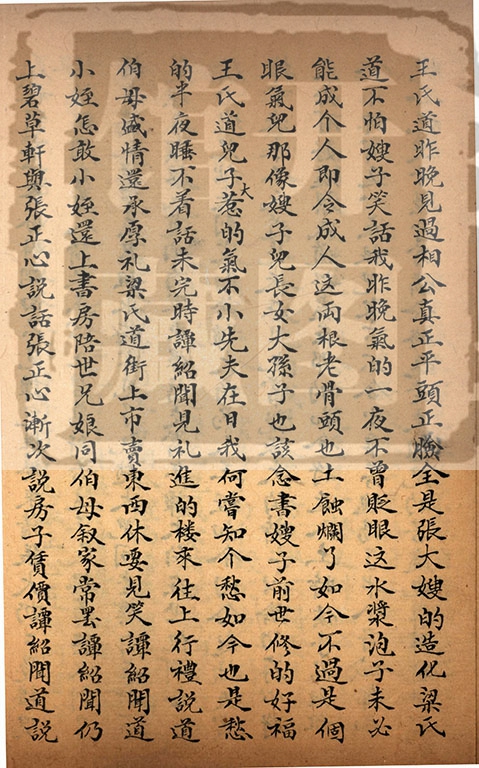 王氏道昨晚見過相公真正平頭正臉全是張大嫂的造化梁氏
道不怕嫂子笑話我昨晚氣的一夜不曾貶眼这水漿泡子未必
能成个人即令成人这兩根老骨頭也土蝕爛了如今不過是個
眼氣兒那像嫂子兒長女大孫子也該念書嫂子前世修的好福
王氏道兒子大惹的氣不小先夫在日我何嘗知个愁如今也是愁
的半夜睡不着話未完時譚紹聞見礼進的楼來往上行禮説道
伯母盛情還承厚礼梁氏道街上市賣東西休要見笑譚紹聞道
小姪怎敢小姪還上書房陪世兄娘同伯母叙家常罢譚紹聞仍
上碧草軒與張正心説話張正心漸次説房子賃價譚紹聞道説